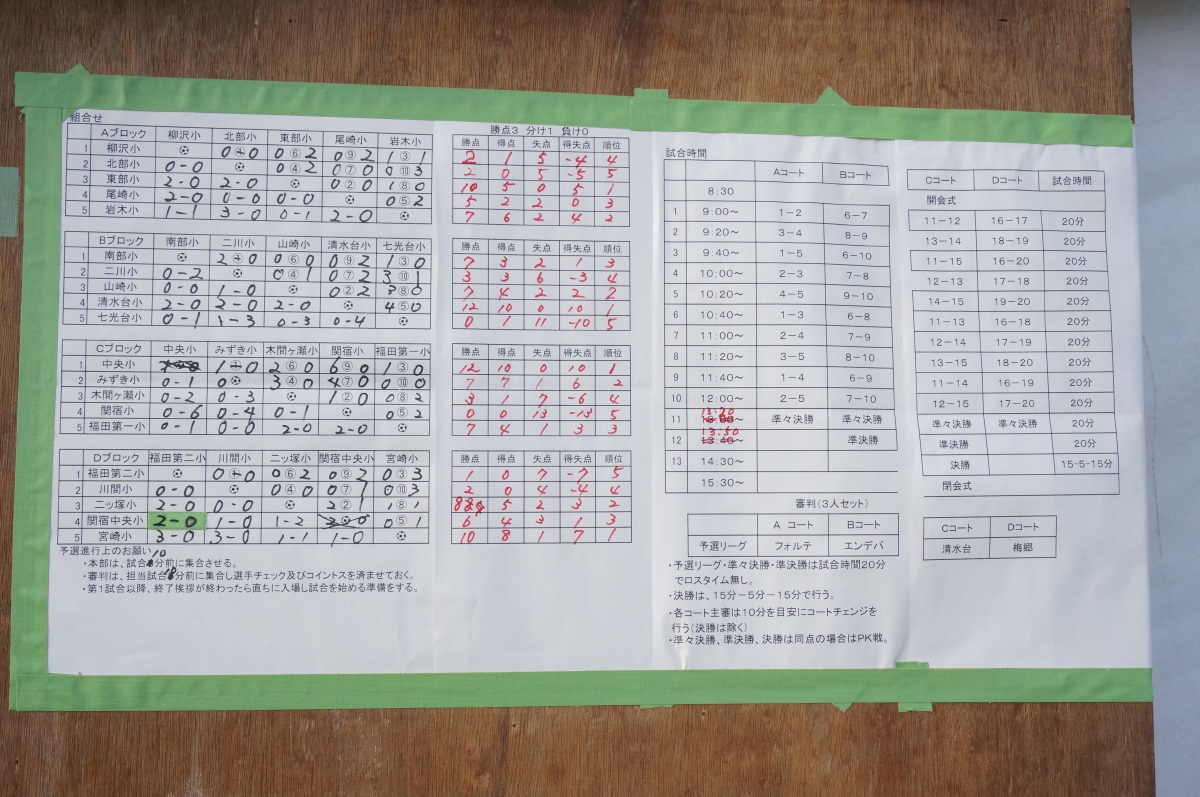 組合せ
Aブロック 柳沢小 北部小 東部小 尾崎小 岩木小
1 柳沢小 0④0 0⑥2 0⑨2 1③1
2 北部小 0-0 0④2 0⑦0 0⑩3
3 東部小 2-0 2-0 0②0 1⑧0
4 尾崎小 2-0 0-0 0-0 0⑤2
5 岩木小 1-1 3-0 0-1 2-0
Bブロック 南部小 二川小 山崎小 清水台小 七光台小
1 南部小 2 0 0⑥0 0⑨2 1③0
2 二川小 0-2 0④1 0⑦2 3⑩1
3 山崎小 0-0 1-0 0②2 3⑧0
4 清水台小 2-0 2-0 2-0 4⑤0
5 七光台小 0-1 1-3 0-3 0-4
Cブロック 中央小 みずき小 木間ヶ瀬小 関宿小 福田第一小
1 中央小 1 0 2⑥0 6⑨0 1③0
2 みずき小 0-1 3④0 4⑦0 0⑩0
3 木間ヶ瀬小 0-2 0-3 1②0 0⑧2
4 関宿小 0-6 0-4 0-1 0⑤2
5 福田第一小 0-1 0-0 2-0 2-0
Dブロック 福田第二小 川間小 二ッ塚小 関宿中央小 宮崎小
1 福田第二小 0 0 0⑥2 0⑨2 0③3
2 川間小 0-0 0④0 0⑦1 0⑩3
3 二ッ塚小 2-0 0-0 2②1 1⑧1
4 関宿中央小 2-0 1-0 1-2 0⑤1
5 宮崎小 3-0 3-0 1-1 1-0
予選進行上のお願い
・本部は、試合10分前に集合させる。
・審判は、担当試合分前に集合し選手チェック及びコイントスを済ませておく。
・第1試合以降、終了挨拶が終わったら直ちに入場し試合を始める準備をする。
勝点3 分け1 負け0
勝点 得点 失点 得失点 順位
2 1 5 -4 4
2 0 5 -5 5
10 5 0 5 1
5 2 2 0 3
7 6 2 4 2
勝点 得点 失点 得失点 順位
7 3 2 1 3
3 3 6 -3 4
7 4 2 2 2
12 10 0 10 1
0 1 11 -10 5
勝点 得点 失点 得失点 順位
12 10 0 10 1
7 7 1 6 2
3 1 7 -6 4
0 0 13 -13 5
7 4 1 3 3
勝点 得点 失点 得失点 順位
1 0 7 -7 5
2 0 4 -4 4
8 5 2 3 2
6 4 3 1 3
10 8 1 7 1
試合時間
Aコート Bコート
8:30
1 9:00～ 1-2 6-7
2 9:20～ 3-4 8-9
3 9:40～ 1-5 6-10
4 10:00～ 2-3 7-8
5 10:20～ 4-5 9-10
6 10:40～ 1-3 6-8
7 11:00～ 2-4 7-9
8 11:20～ 3-5 8-10
9 11:40～ 1-4 6-9
10 12:00～ 2-5 7-10
11 13:20 13:00～ 準々決勝 準々決勝
12 13:50 13:40～ 準決勝
13 14:30～
15:30～
審判(3人セット)
A コート Bコート
予選リーグ フォルテ エンデバ
・予選リーグ・準々決勝・準決勝は試合時間20分
でロスタイム無し。
・決勝は、15分-5分-15分で行う。
・各コート主審は10分を目安にコートチェンジを
行う(決勝は除く)
・準々決勝、準決勝、決勝は同点の場合はPK戦。
Cコート Dコート 試合時間
開会式
11-12 16-17 20分
13-14 18-19 20分
11-15 16-20 20分
12-13 17-18 20分
14-15 19-20 20分
11-13 16-18 20分
12-14 17-19 20分
13-15 18-20 20分
11-14 16-19 20分
12-15 17-20 20分
準々決勝 準々決勝 20分
準決勝 20分
決勝 15-5-15分
閉会式
Cコート Dコート
清水台 梅郷